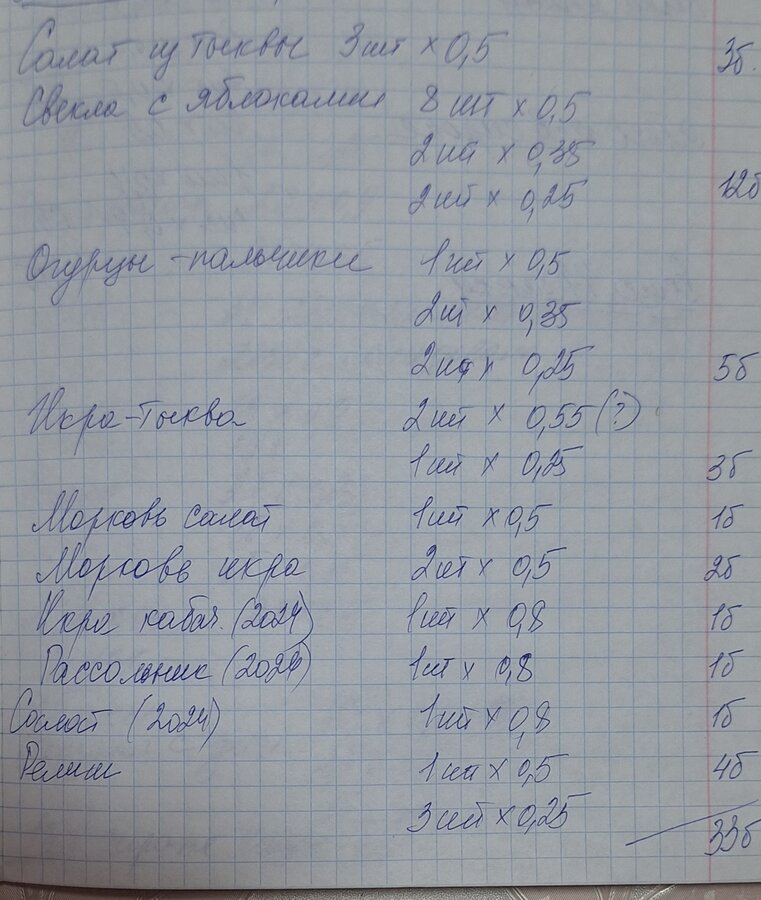 Салат из тыквы 3 шт х 0,5 3б.
Свекла с яблоками 8 шт х 0,5
2 шт х 0,35
2 шт х 0,25 12б
Огурцы-пальчики 1 шт х 0,5
2 шт х 0,35
2 шт х 0,25 5б
Икра-тыква 2 шт х 0,55 (?)
1 шт х 0,25 3б
Морковь салат 1 шт х 0,5 1б
Морковь икра 2 шт х 0,5 2б
Икра кабач. (2024) 1 шт х 0,8 1б
Рассольник (2024) 1 шт х 0,8 1б
Салат (2024) 1 шт х 0,8 1б
Релиш 1 шт х 0,5 4б
3 шт х 0,25
33б